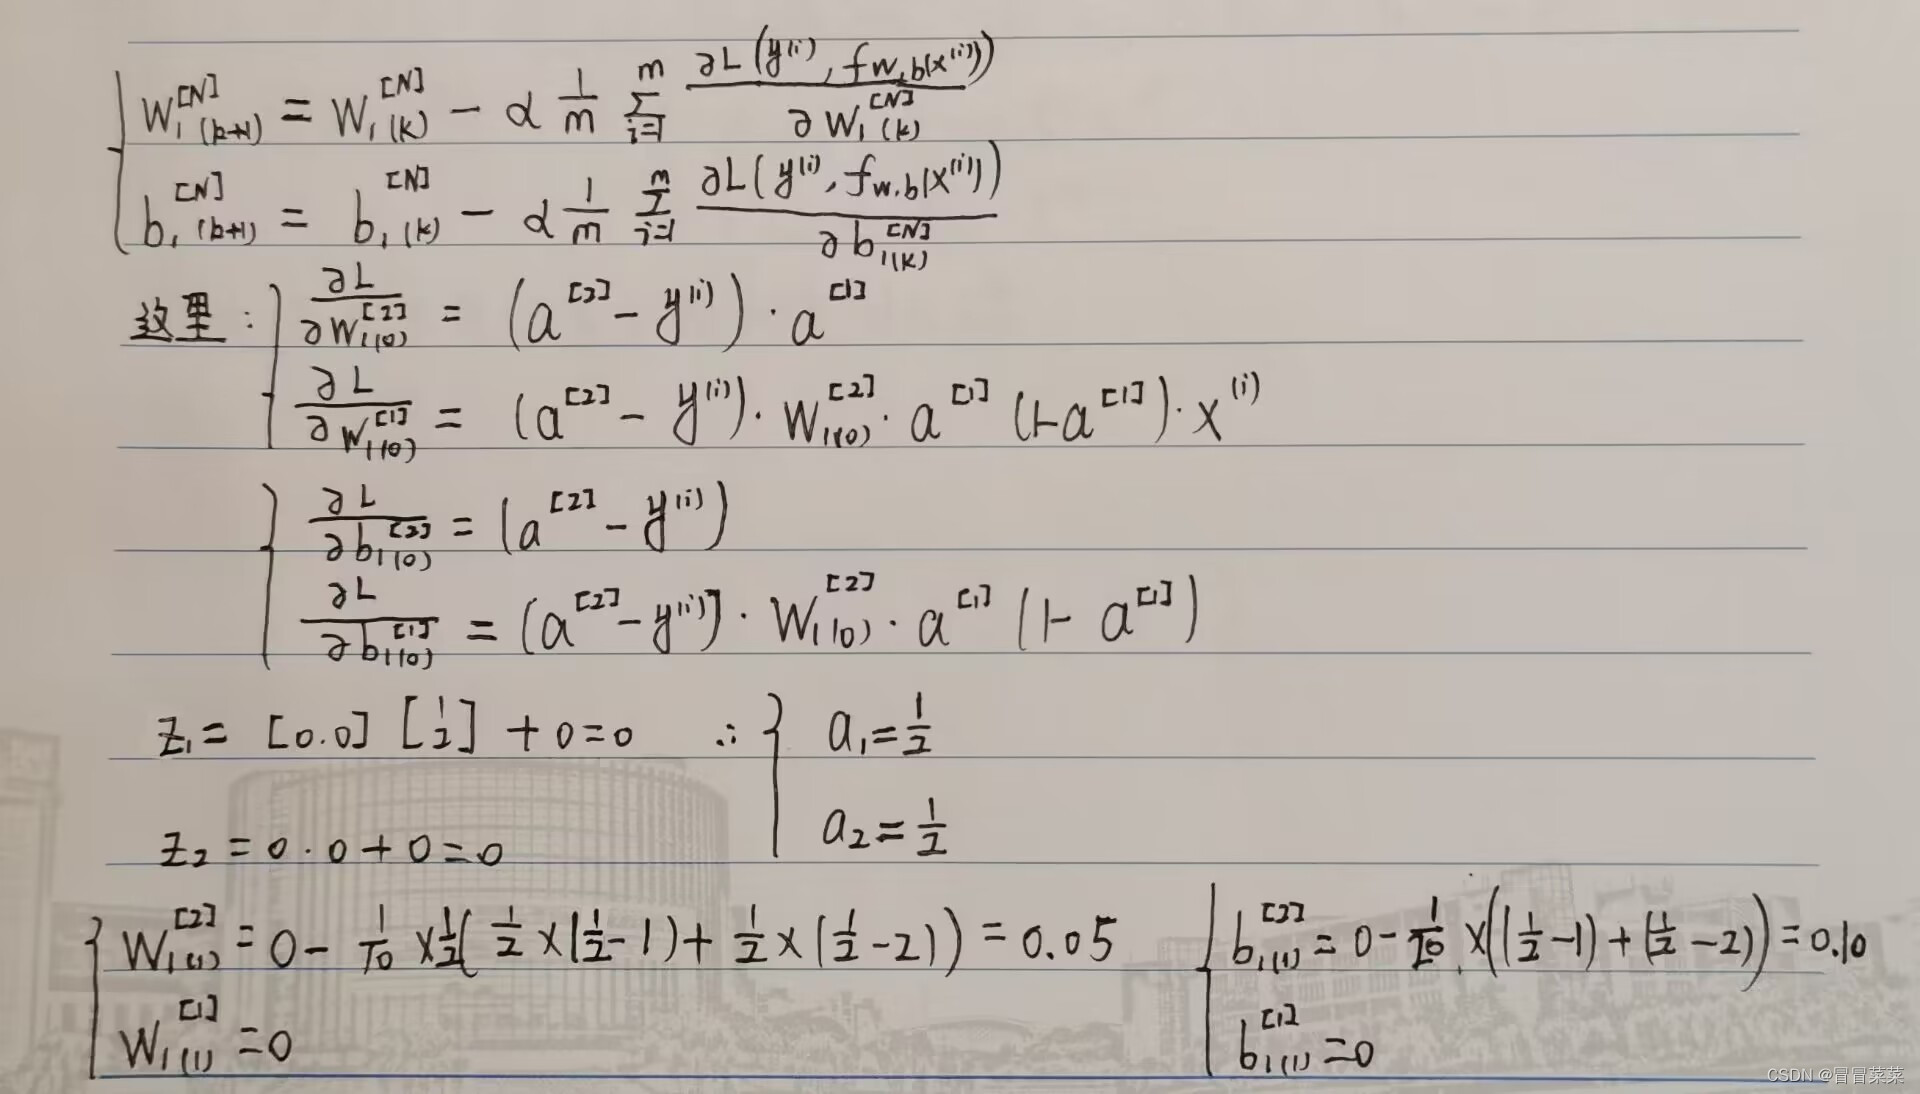 W₁₍ₖ₊₁₎^[N] = W₁₍ₖ₎^[N] − α 1/m Σ_{i=1}^{m} ∂L(y^(i), f_{w,b}(x^(i))) / ∂W₁₍ₖ₎^[N]
b₁₍ₖ₊₁₎^[N] = b₁₍ₖ₎^[N] − α 1/m Σ_{i=1}^{m} ∂L(y^(i), f_{w,b}(x^(i))) / ∂b₁₍ₖ₎^[N]
这里: ∂L/∂W₁₍₀₎^[2] = (a^[2] − y^(i)) · a^[1]
∂L/∂W₁₍₀₎^[1] = (a^[2] − y^(i)) · W₁₍₀₎^[2] · a^[1] (1−a^[1]) · x^(i)
∂L/∂b₁₍₀₎^[2] = (a^[2] − y^(i))
∂L/∂b₁₍₀₎^[1] = (a^[2] − y^(i)) · W₁₍₀₎^[2] · a^[1] (1− a^[1])
z₁ = [0.0] [1/2] + 0 = 0 ∴ { a₁ = 1/2
z₂ = 0·0 + 0 = 0 a₂ = 1/2
W₁₍₁₎^[2] = 0 − 1/10 × 1/2 ( 1/2 × (1/2 − 1) + 1/2 × (1/2 − 2) ) = 0.05 b₁₍₁₎^[2] = 0 − 1/20 × ((1/2 − 1) + (1/2 − 2)) = 0.10
W₁₍₁₎^[1] = 0 b₁₍₁₎^[1] = 0
CSDN @冒冒菜菜